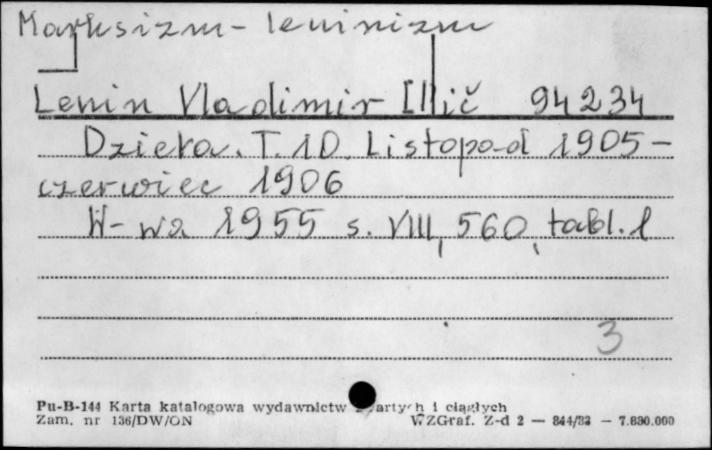 Marksizm-leninizm
Lenin Vladimir Il'ič 94234
Dzieła. T. 10. Listopad 1905-
czerwiec 1906
W-wa 1955 s. VIII, 560, tabl. 1
3
Pu-B-144 Karta katalogowa wydawnictw zwartych i ciągłych
Zam. nr 136/DW/ON WZGraf. Z-d 2 — 844/83 — 7.830.000